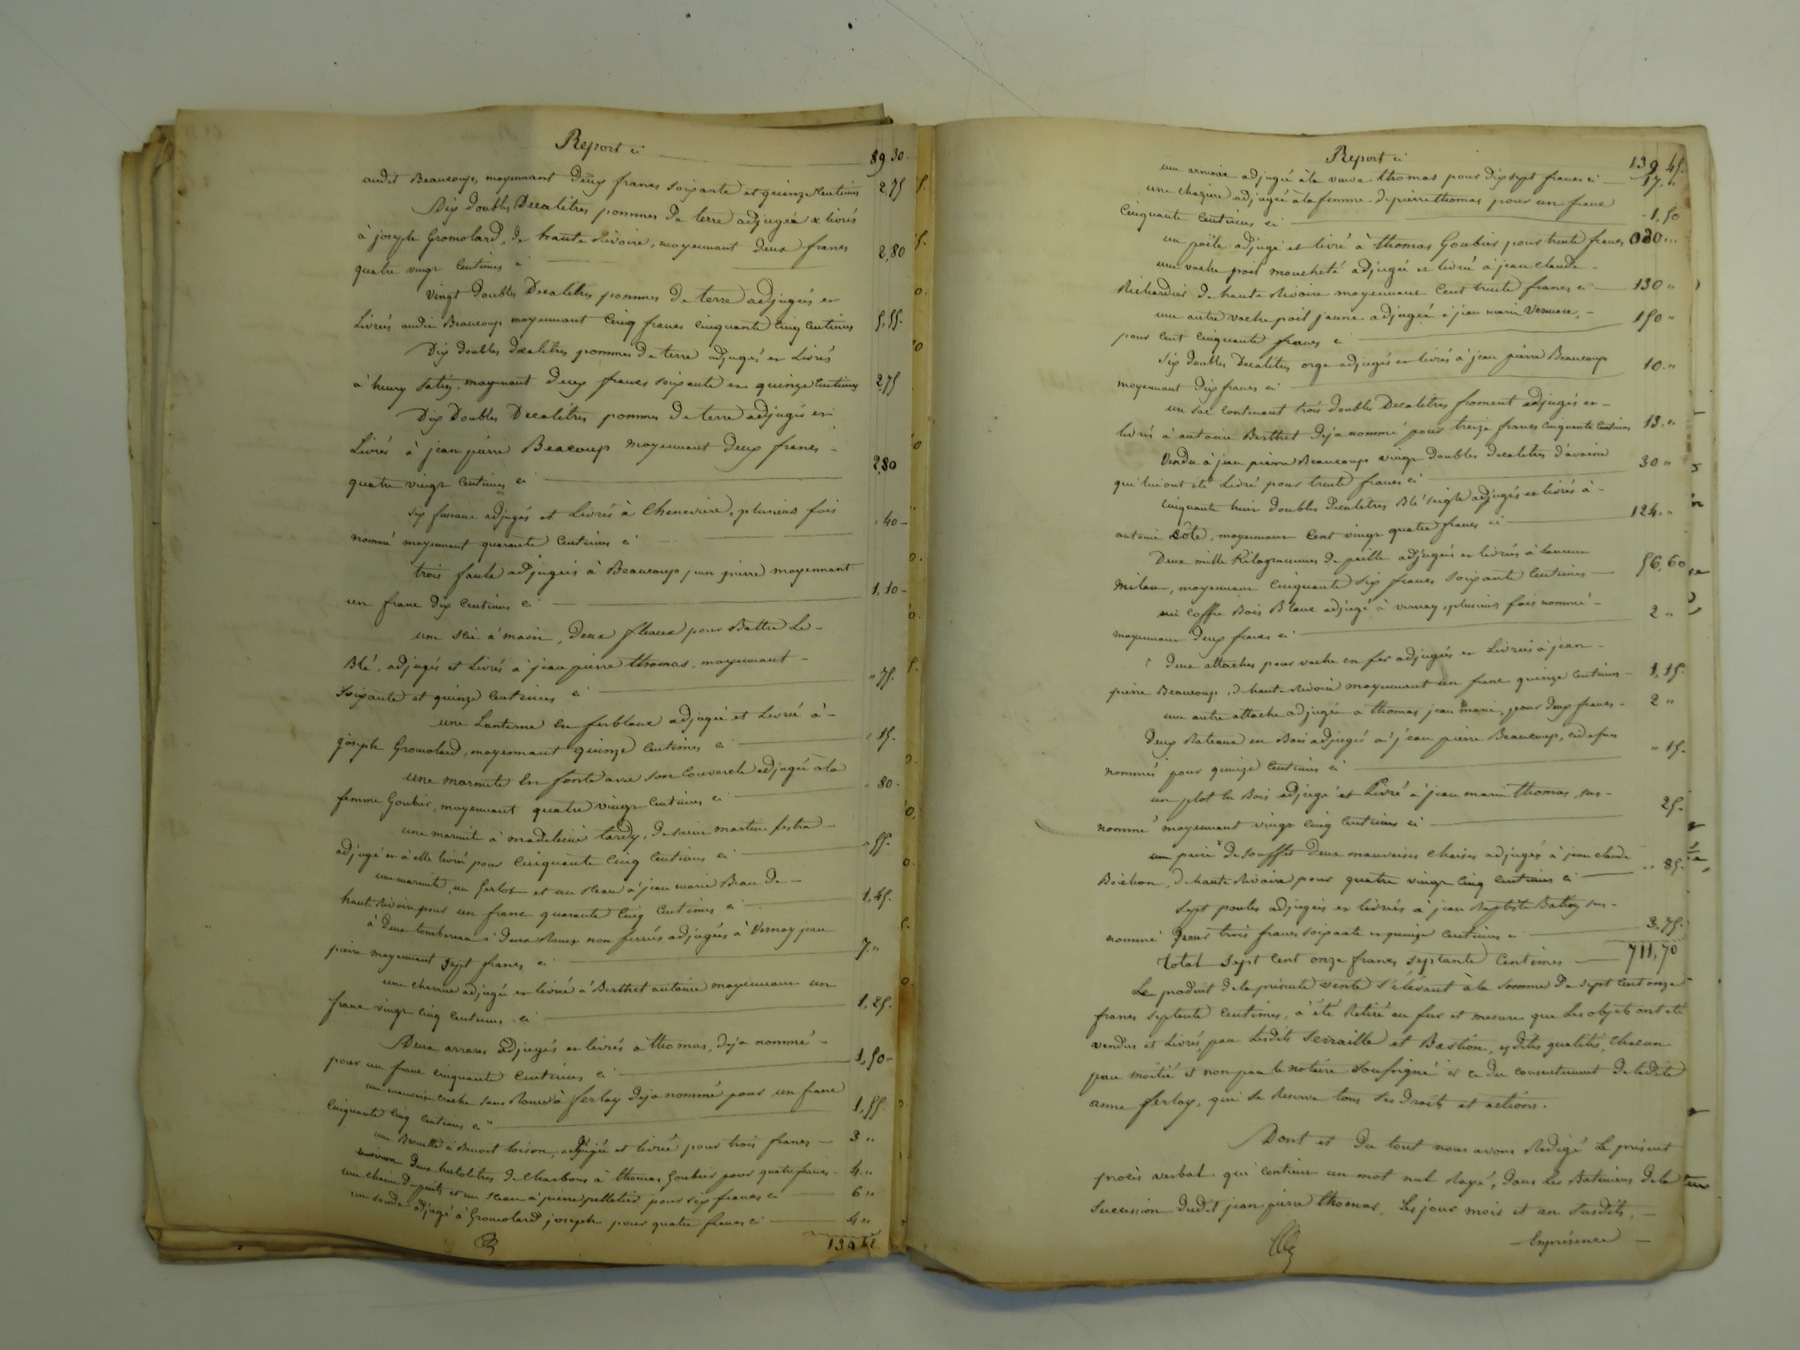 Report ci 89 30
audit Beaucoup, moyennant deux francs soixante et quinze centimes 2,75
Dix doubles Decalitres pommes de terre adjugés & livrés
à joseph Gromolard, de haute Rivoire, moyennant deux francs
quatre vingt centimes ci 2,80
Vingt doubles Decalitres pommes de terre adjugés et
Livrés audit Beaucoup moyennant cinq francs cinquante cinq centimes 5,55.
Dix doubles decalitres pommes de terre adjugés et Livrés
à henry moyennant deux francs soixante et quinze centimes 2,75
Dix Doubles Decalitres pommes de terre adjugés et
Livrés à jean pierre Beaucoup moyennant deux francs
quatre vingt centimes ci 2,80
six adjugés et Livrés à Chenevière, plusieurs fois
nommé moyennant quarante centimes ci " 40
trois faulx adjugées à Beaucoup jean pierre moyennant
un franc dix centimes ci 1,10
une scie à main, deux fléaux pour Battre Le
Blé, adjugés et Livrés à jean pierre thomas, moyennant
soixante et quinze centimes ci " 75.
une Lanterne en ferblanc adjugée et Livrée à
joseph Gromolard, moyennant quinze centimes ci " 15.
une marmite en fonte avec son couvercle adjugée à la
femme Goubier, moyennant quatre vingt centimes ci " 80
une marmite à madeleine tardy, de saint martin
adjugé et à elle livré pour cinquante cinq centimes ci " 55.
une marmite, un et un seau à jean marie de
haute Rivoire pour un franc quarante cinq centimes ci 1,45.
à Deux tombereau à deux Roues non ferrées adjugés à Vernay jean
pierre moyennant sept francs ci 7 "
une charrue adjugée et livrée à Berthet antoine moyennant un
franc vingt cinq centimes ci 1,25.
Deux araires adjugés et livrés à thomas, déja nommé
pour un franc cinquante centimes ci 1,50
une mauvaise sans Roues à ferlay déja nommé pour un franc
cinquante cinq centimes ci 1,55.
une Brouette à Benoit loison, adjugée et livrée pour trois francs 3 "
environ deux hectolitres de charbons à thomas Goubier pour quatre francs 4 "
une chaine de puits et un seau à pierre pelletier pour six francs ci 6 "
un adjugé à Gromolard joseph pour quatre francs ci 4 "
139 45
Report ci 139 45.
une armoire adjugée à la veuve thomas pour dix sept francs ci 17 "
une adjugée à la femme de pierre thomas pour un franc
cinquante centimes ci 1,50
un poële adjugé et livré à thomas Goubier pour trente francs 030 "
une vache poil moucheté adjugée et livrée à jean claude
de haute Rivoire moyennant cent trente francs ci 130 "
une autre vache poil jaune adjugée à jean marie
pour cent cinquante francs ci 150 "
six doubles Decalitres orge adjugés et livrés à jean pierre Beaucoup
moyennant dix francs ci 10 "
un sac contenant trois doubles Decalitres froment adjugés et
livrés à antoine Berthet déja nommé pour treize francs cinquante centimes 13 "
Vendu à jean pierre Beaucoup vingt doubles decalitres d'avoine
qui lui ont été Livré pour trente francs ci 30 "
cinquante huit doubles decalitres Blé seigle adjugés et livrés à
antoine moyennant cent vingt quatre francs ci 124 "
Deux mille Kilogrammes de paille adjugés et livrés à
moyennant cinquante six francs soixante centimes 56,60
un coffre Bois Blanc adjugé à vernay, plusieurs fois nommé
moyennant deux francs ci 2 "
Deux attaches pour vache en fer adjugées et Livrées à jean
pierre Beaucoup, de haute Rivoire moyennant un franc quinze centimes 1,15.
une autre attache adjugée à thomas jean marie, pour deux francs 2 "
Deux Rateaux en Bois adjugés à jean pierre Beaucoup,
nommé pour quinze centimes ci " 15.
un plot en Bois adjugé et Livré à jean marie thomas, sus
nommé moyennant vingt cinq centimes ci 25.
une paire de soufflet deux mauvaises chaises adjugés à jean claude
de haute Rivoire pour quatre vingt cinq centimes ci " 85.
sept poules adjugées et livrées à jean Baptiste sus
nommé pour trois francs soixante et quinze centimes ci 3,75.
total sept cent onze francs septante centimes 711,70
Le produit de la présente vente s'élevant à la somme de sept cent onze
francs septante centimes, a été Retiré au fur et mesure que les objets ont été
vendus et Livrés, par Lesdits Serraille et Bastion, esdites qualités, chacun
par moitié et non par le notaire soussigné et ce du consentement de ladite
anne ferlay, qui se Reserve tous ses droits et actions.
Dont et du tout nous avons Rédigé Le présent
procès verbal qui contient un mot nul Rayé, dans Les Batiments de la
succession dudit jean pierre thomas, Les jour mois et an susdits,
En présence